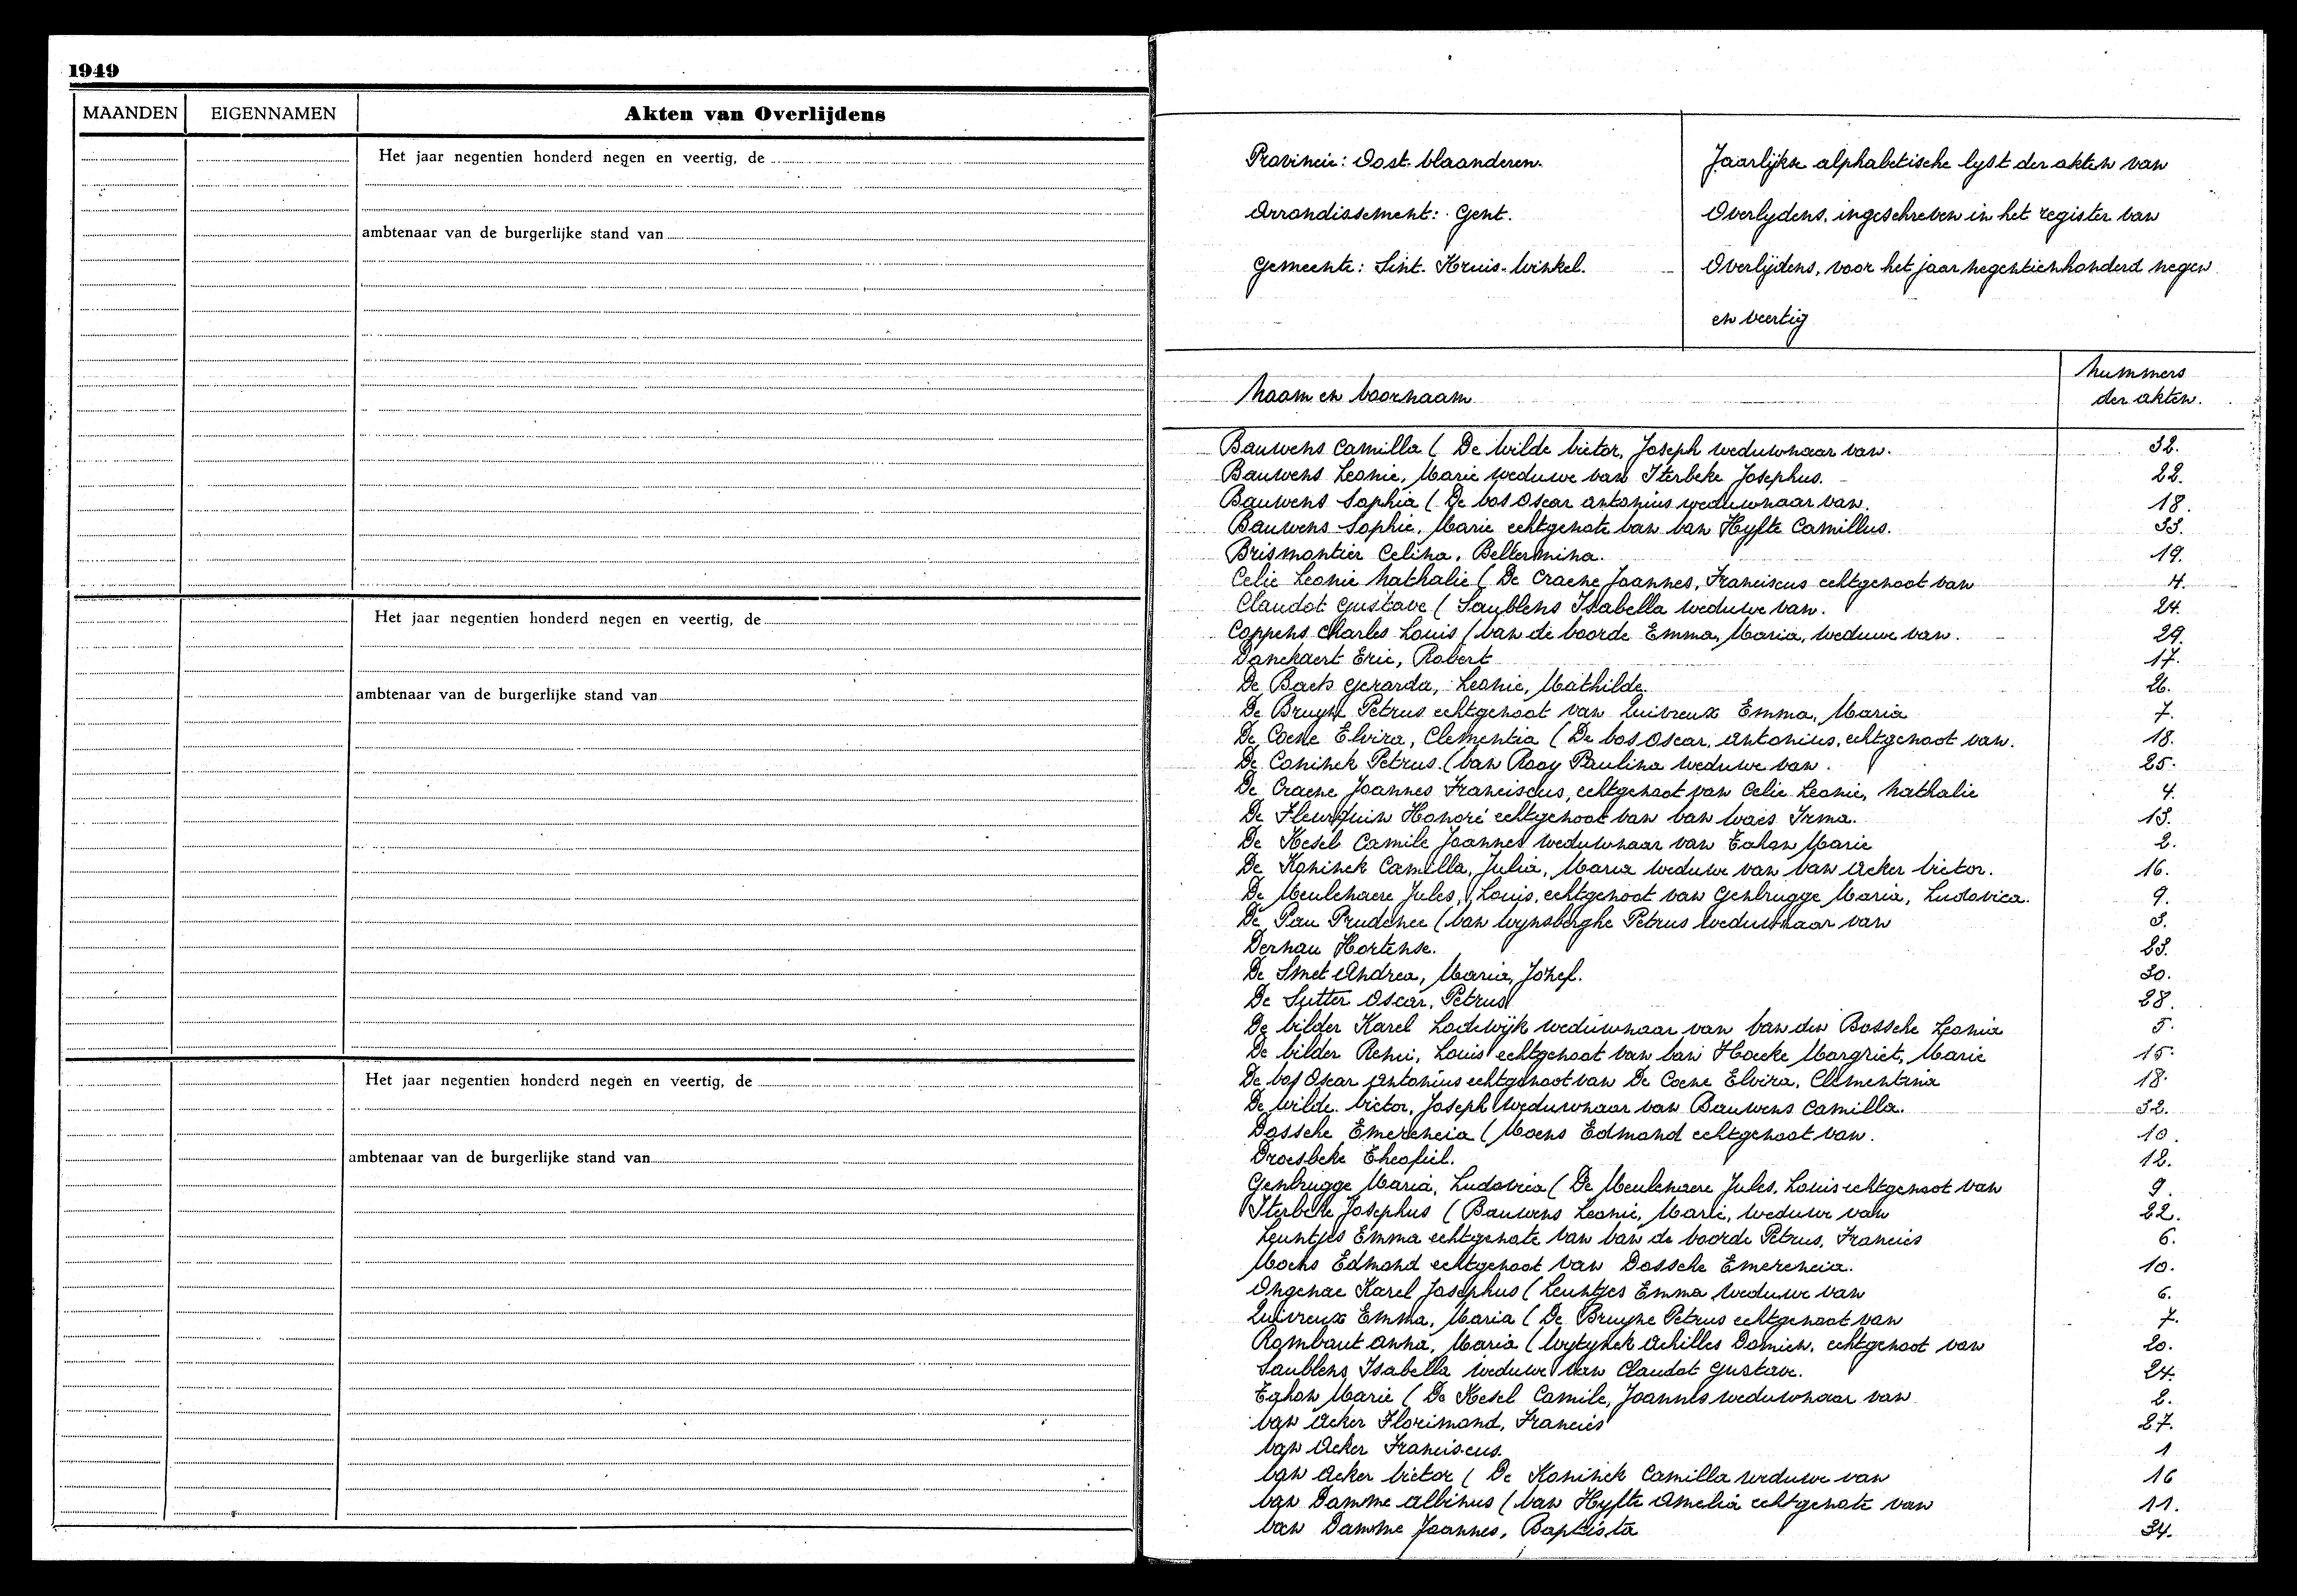 1949
MAANDEN EIGENNAMEN Akten van Overlijdens
Het jaar negentien honderd negen en veertig, de
ambtenaar van de burgerlijke stand van
Het jaar negentien honderd negen en veertig, de
ambtenaar van de burgerlijke stand van
Het jaar negentien honderd negen en veertig, de
ambtenaar van de burgerlijke stand van
Provincie: Oost. Vlaanderen.
Arrondissement: Gent.
Gemeente: Sint. Kruis-Winkel.
Jaarlijkse alphabetische lyst der akten van
Overlydens, ingeschreven in het register van
Overlijdens, voor het jaar negentienhonderd negen
en veertig
Naam en voornaam
Nummers
der akten.
Bauwens Camilla ( De Wilde Victor, Joseph weduwnaar van. 32.
Bauwens Leonie, Marie weduwe van Iterbeke Josephus. 22.
Bauwens Sophia ( De Vos Oscar Antonius weduwnaar van. 18.
Bauwens Sophie, Marie echtgenote van Van Hyfte Camillus. 33.
Brismontier Celina, Beltermina. 19.
Celie Leonie Nathalie ( De Craene Joannes, Franciscus echtgenoot van 4.
Claudot Gustave ( Saublens Isabella weduwe van. 24.
Coppens Charles Louis ( Van de Voorde Emma, Maria, weduwe van. 29.
Danckaert Eric, Robert 17.
De Baets Gerarda, Leonie, Mathilde. 26.
De Bruyn Petrus echtgenoot van Quivreux Emma, Maria 7.
De Coene Elvira, Clementia ( De Vos Oscar, Antonius, echtgenoot van. 18.
De Coninck Petrus. ( Van Rooy Paulina weduwe van. 25.
De Craene Joannes Franciscus, echtgenoot van Celie Leonie, Nathalie 4.
De Fleurquin Honoré echtgenoot van Van Waes Irma. 13.
De Kesel Camile Joannes weduwnaar van Eahon Marie 2.
De Koninck Camilla, Julia, Maria weduwe van Van Acker Victor. 16.
De Meulenaere Jules, Louis, echtgenoot van Genbrugge Maria, Ludovica. 9.
De Pau Prudence ( Van Wynsberghe Petrus weduwnaar van 3.
Dernau Hortense. 23.
De Smet Andrea, Maria, Jozef. 30.
De Sutter Oscar, Petrus 28.
De Vilder Karel Lodewijk weduwnaar van Van den Bossche Leonia 5.
De Vilder Remi, Louis echtgenoot van Van Hoecke Margriet, Marie 15.
De Vos Oscar Antonius echtgenoot van De Coene Elvira, Clementina 18.
De Wilde Victor, Joseph weduwnaar van Bauwens Camilla. 32.
Dossche Emerencia ( Moens Edmond echtgenoot van. 10.
Droesbeke Theofiel. 12.
Genbrugge Maria, Ludovica ( De Meulenaere Jules, Louis echtgenoot van 9.
Iterbeke Josephus ( Bauwens Leonie, Marie, weduwe van 22.
Leuntjes Emma echtgenote van Van de Voorde Petrus, Francies 6.
Moens Edmond echtgenoot van Dossche Emerencia. 10.
Ongenae Karel Josephus ( Leuntjes Emma weduwe van 6.
Quivreux Emma, Maria ( De Bruyne Petrus echtgenoot van 7.
Rombaut Anna, Maria ( Wytynck Achilles Damien, echtgenoot van 20.
Saublens Isabella weduwe van Claudot Gustave. 24.
Eahon Marie ( De Kesel Camile, Joannes weduwnaar van 2.
Van Acker Florimond, Francies 27.
Van Acker Franciscus. 1
Van Acker Victor ( De Koninck Camilla weduwe van 16
Van Damme Albinus ( Van Hyfte Amelia echtgenote van 11.
Van Damme Joannes, Baptista 34.